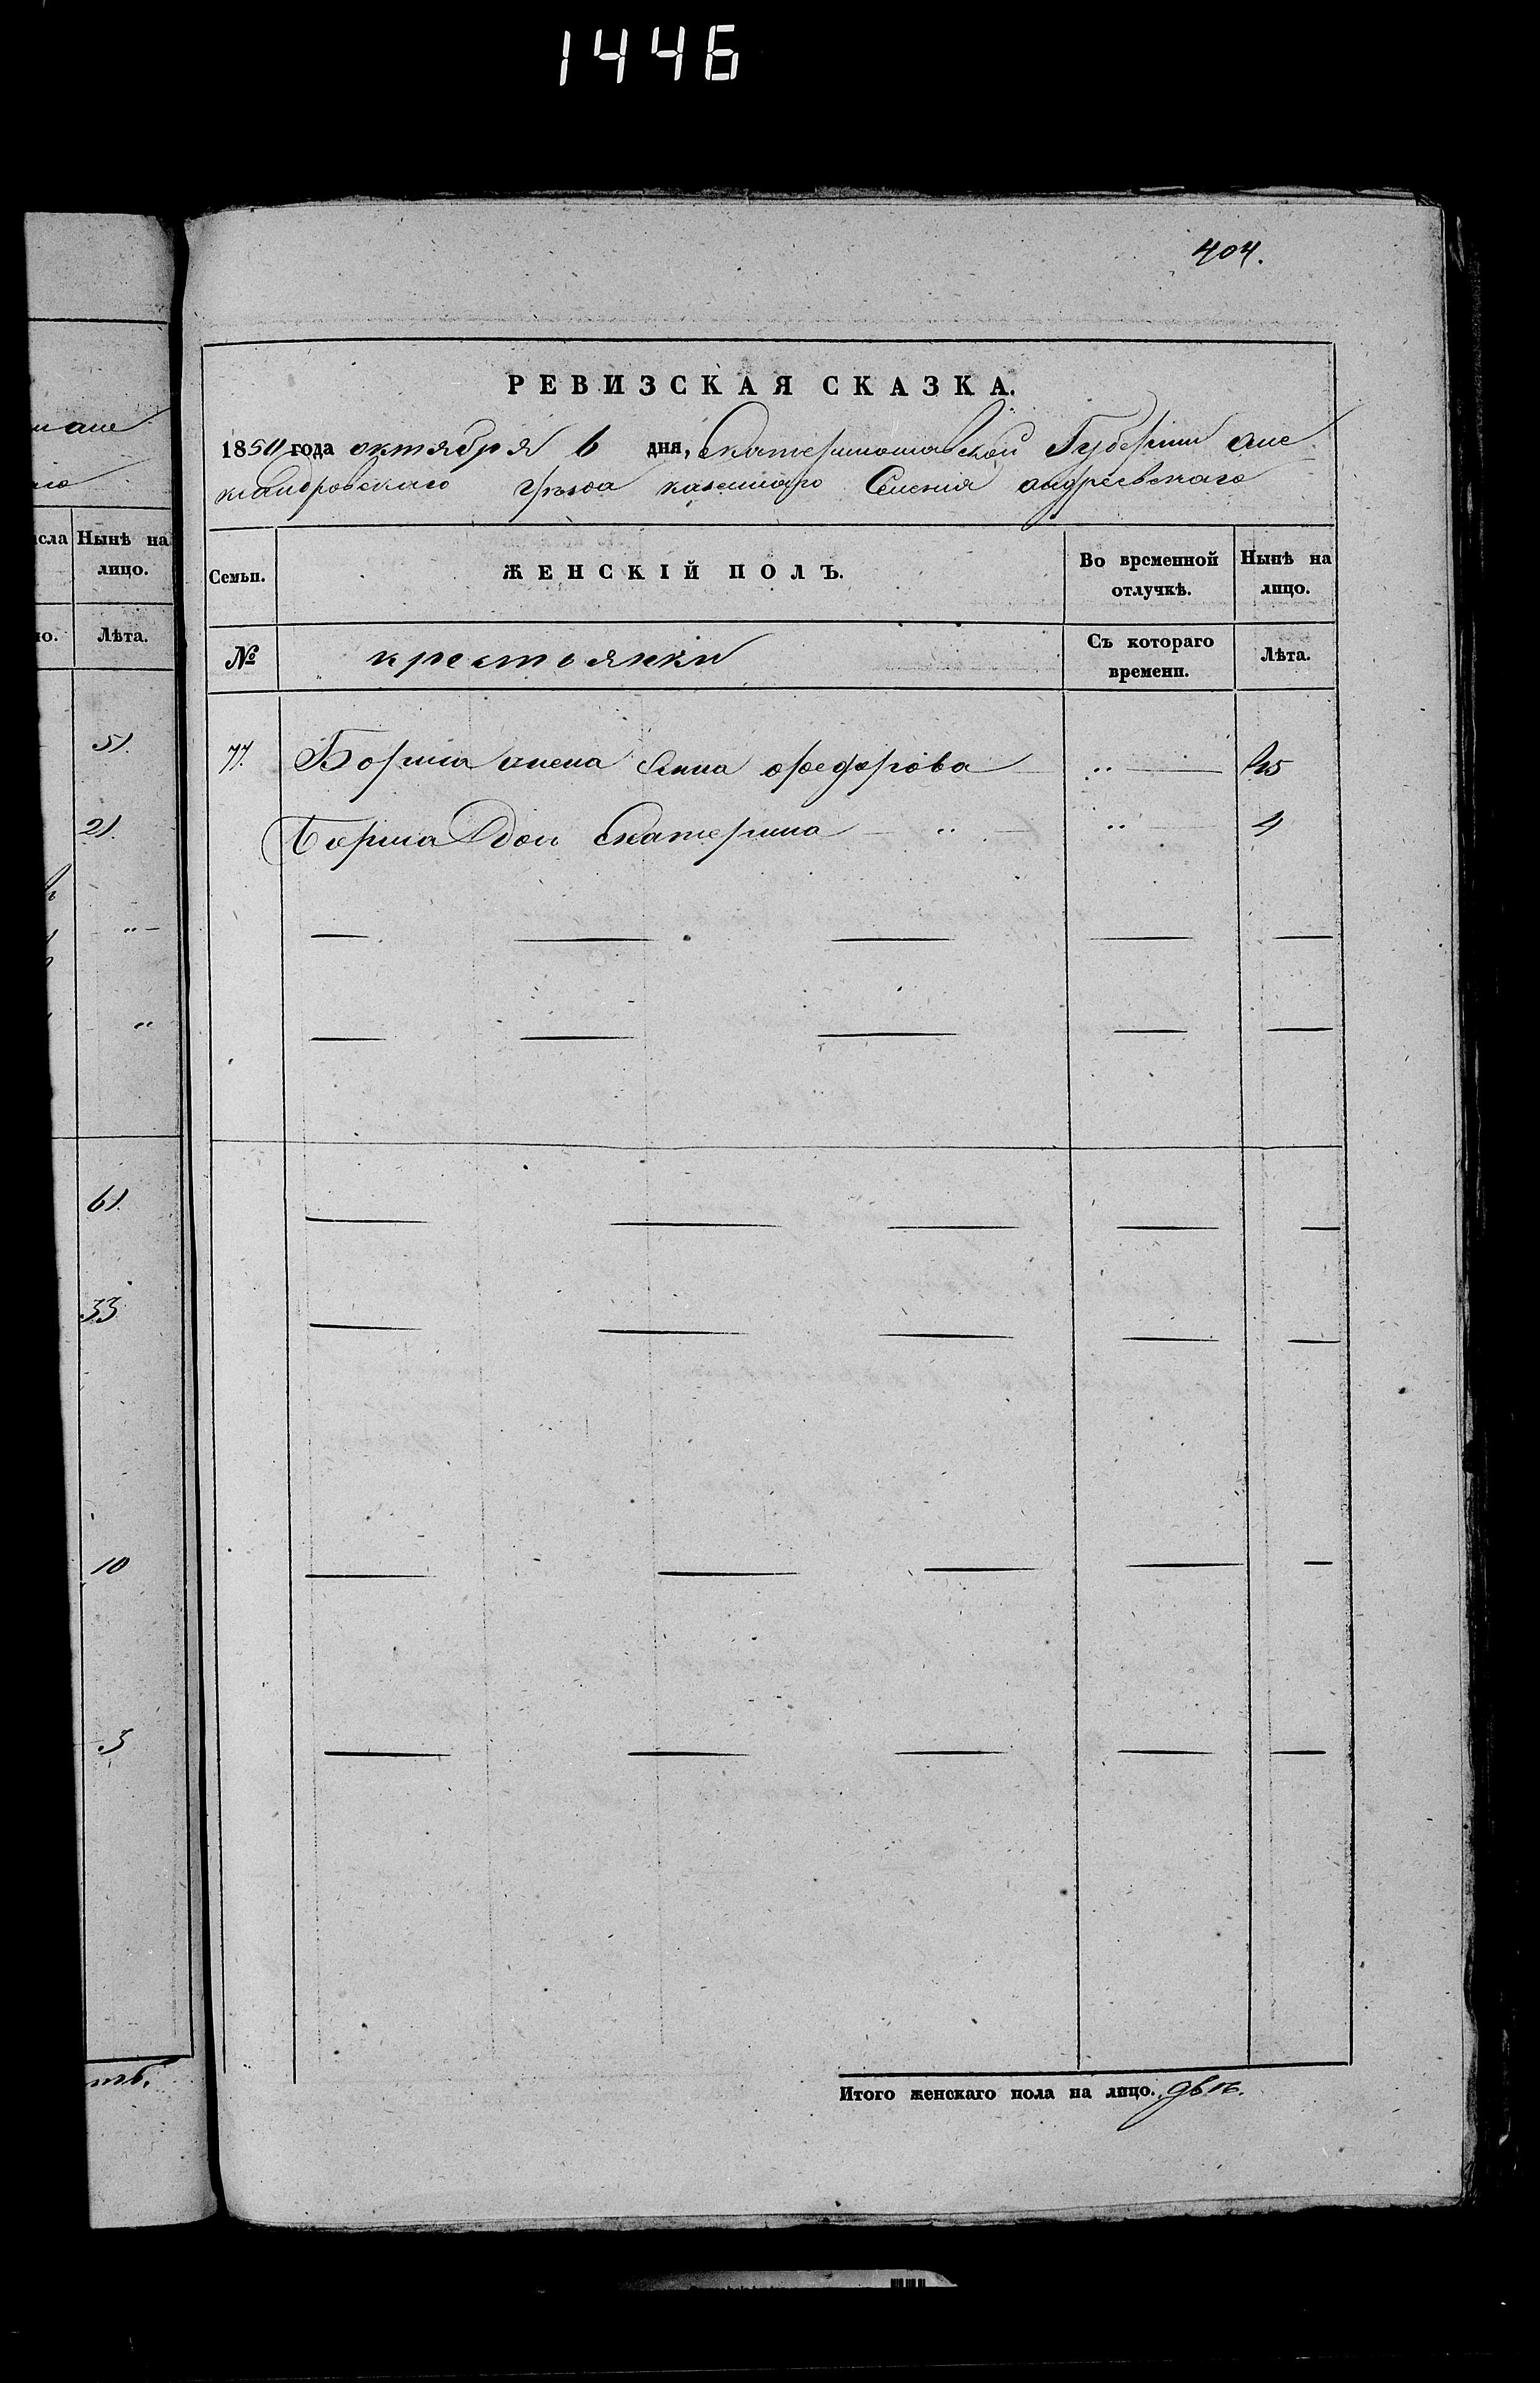 1446
404.
РЕВИЗСКАЯ СКАЗКА.
1850 года октября 6 дня, Екатеринославской Губернии Але
ксандровского уезда казенного Селения андреевского
исла
Нынѣ на лицо.
Лѣта.
Семьи.
ЖЕНСКІЙ ПОЛЪ.
Во временной отлучкѣ.
Нынѣ на лицо.
№
крестьянки
Съ котораго времени.
Лѣта.
77. Бориса жена Анна федорова " 45
Бориса дочь Екатерина " " 4
51.
21.
"
"
61.
33
10
3
Итого женскаго пола на лицо. двѣ.